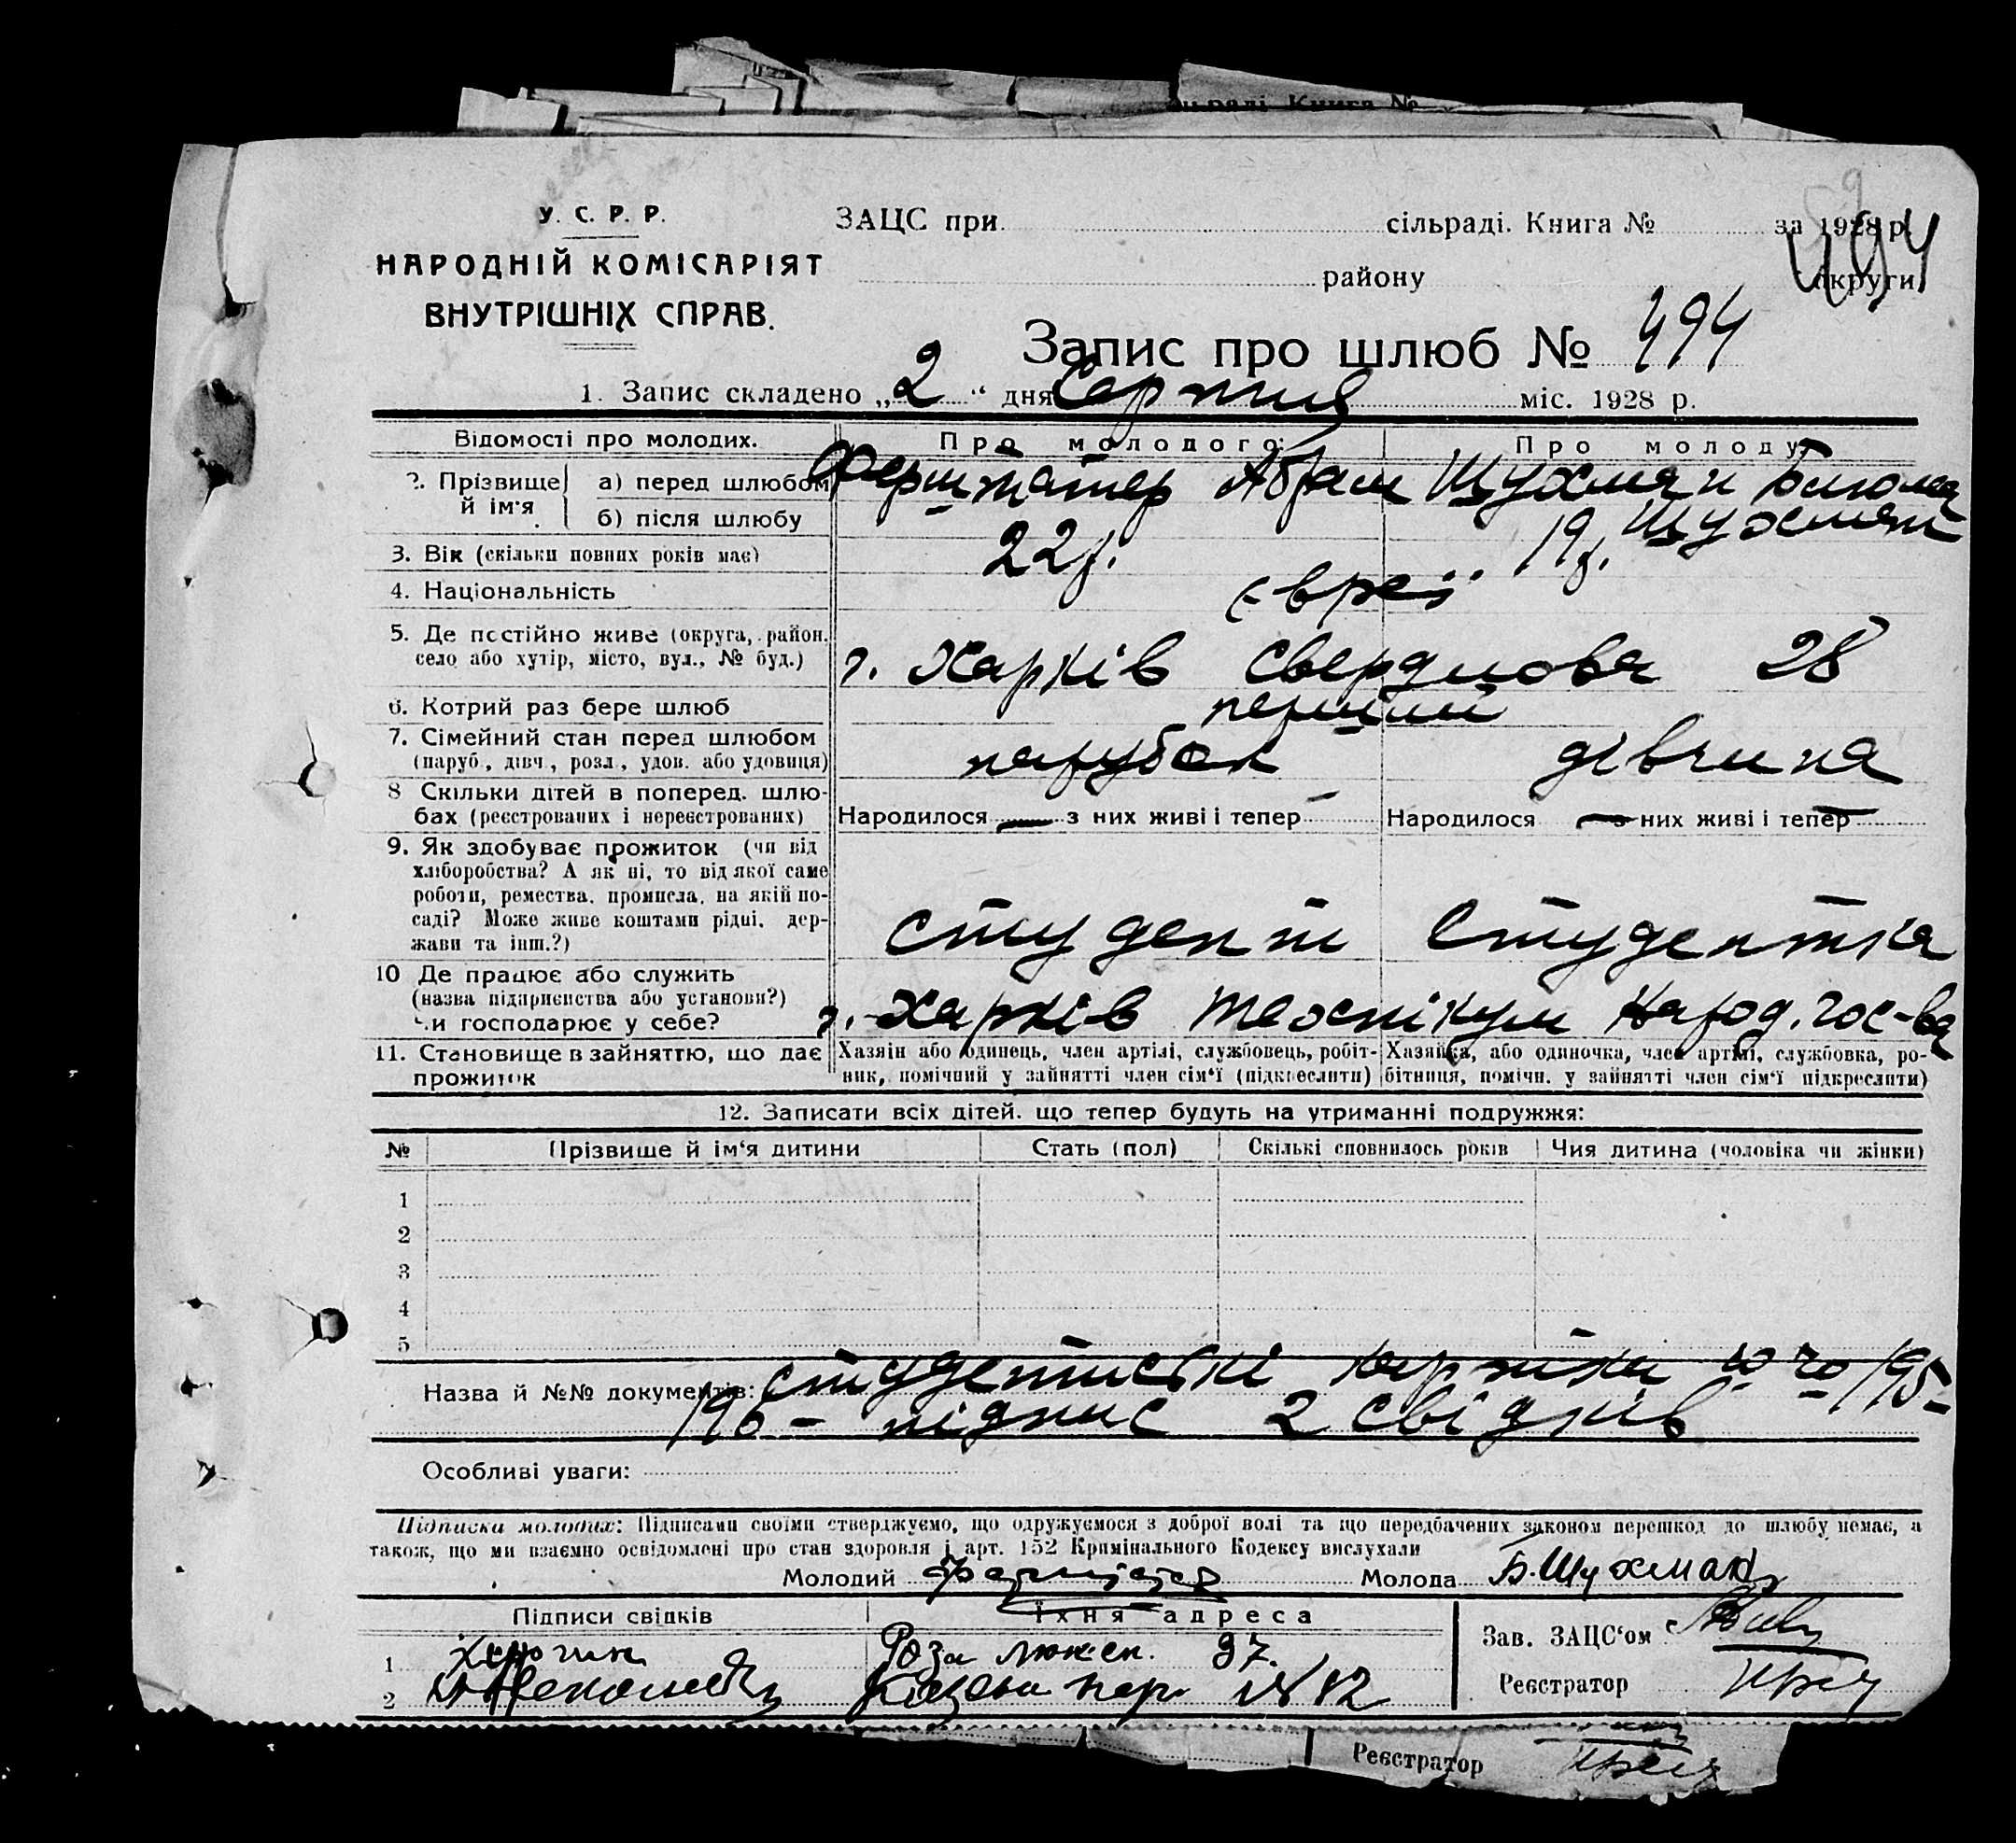 У. С. Р. Р.
НАРОДНІЙ КОМІСАРІЯТ
ВНУТРІШНІХ СПРАВ.
ЗАЦС при сільраді. Книга № за 1928 р.
району округи
494
Запис про шлюб № 494
1. Запис складено „2“ дня Серпня міс. 1928 р.
Відомості про молодих. Про молодого: Про молоду:
2. Прізвище й ім'я а) перед шлюбом Ферштатер Абрам Шухман Блюма
б) після шлюбу Шухман
3. Вік (скільки повних років має) 22 р. 19 р.
4. Національність євреї
5. Де постійно живе (округа, район,
село або хутір, місто, вул., № буд.) г. Харків Свердлова 28
6. Котрий раз бере шлюб перший
7. Сімейний стан перед шлюбом
(паруб., дівч., розл., удов. або удовиця) парубок дівчина
8 Скільки дітей в поперед. шлю-
бах (реєстрованих і нереєстрованих) Народилося — з них живі і тепер — Народилося — з них живі і тепер —
9. Як здобуває прожиток (чи від
хліборобства? А як ні, то від якої саме
роботи, ремества, промисла, на якій по-
саді? Може живе коштами рідні, дер-
жави та інш.?) студент студентка
10 Де працює або служить
(назва підприємства або установи?)
чи господарює у себе? г. Харків технікум Народ. гос-ва
11. Становище в зайняттю, що дає
прожиток
Хазяін або одинець, член артілі, службовець, робіт-
ник, помічний у зайнятті член сім'ї (підкреслити)
Хазяйка, або одиночка, член артілі, службовка, ро-
бітниця, помічн. у зайнятті член сім'ї підкреслити)
12. Записати всіх дітей, що тепер будуть на утриманні подружжя:
№ Прізвище й ім'я дитини Стать (пол) Скількі сповнилось років Чия дитина (чоловіка чи жінки)
1
2
3
4
5
Назва й №№ документів: студентські картки 195-
196 - підпис 2 свідків
Особливі уваги:
Підписки молодих: Підписами своїми стверджуємо, що одружуємося з доброї волі та що передбачених законом перешкод до шлюбу немає, а
також, що ми взаємно освідомлені про стан здоровля і арт. 152 Кримінального Кодексу вислухали
Молодий Молода Б. Шухман
Підписи свідків Їхня адреса
Зав. ЗАЦС'ом
1 Роза люксен. 97.
Реєстратор
2 пер. № 12
Реєстратор